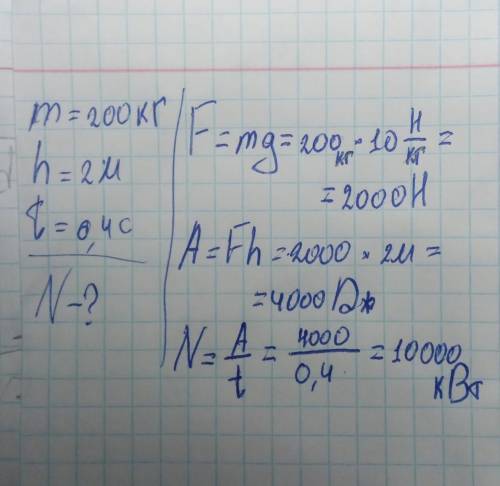 m = 200 кг
h = 2м
t = 0,4 с
N - ?
F = mg = 200 кг · 10 Н/кг =
= 2000 Н
A = Fh = 2000 · 2м =
= 4000 Dж
N = A/t = 4000/0,4 = 10000
кВт